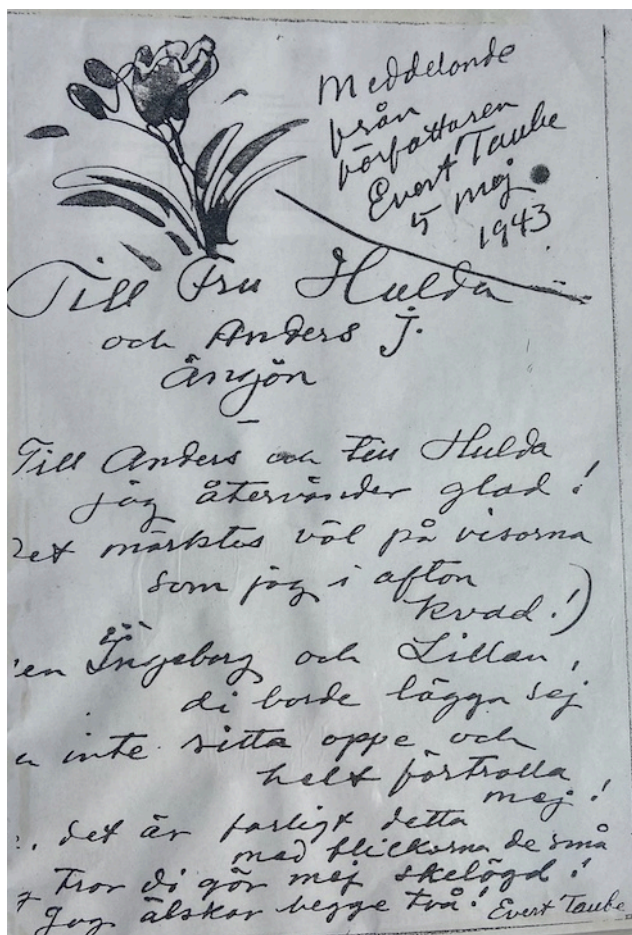 Meddelande
från
författaren
Evert Taube
5 maj
1943
Till Fru Hulda
och Anders J.
Ängön
Till Anders och Fru Hulda
jag återvänder glad!
Det märktes väl på visorna
som jag i afton
kvad!)
en Ingeborg och Lillan,
di borde lägga sej
inte sitta oppe och
helt förtrolla
mej!
det är farligt detta
med flickorna de små
tror di gör mej skelögd!
Jag älskar begge två!
Evert Taube